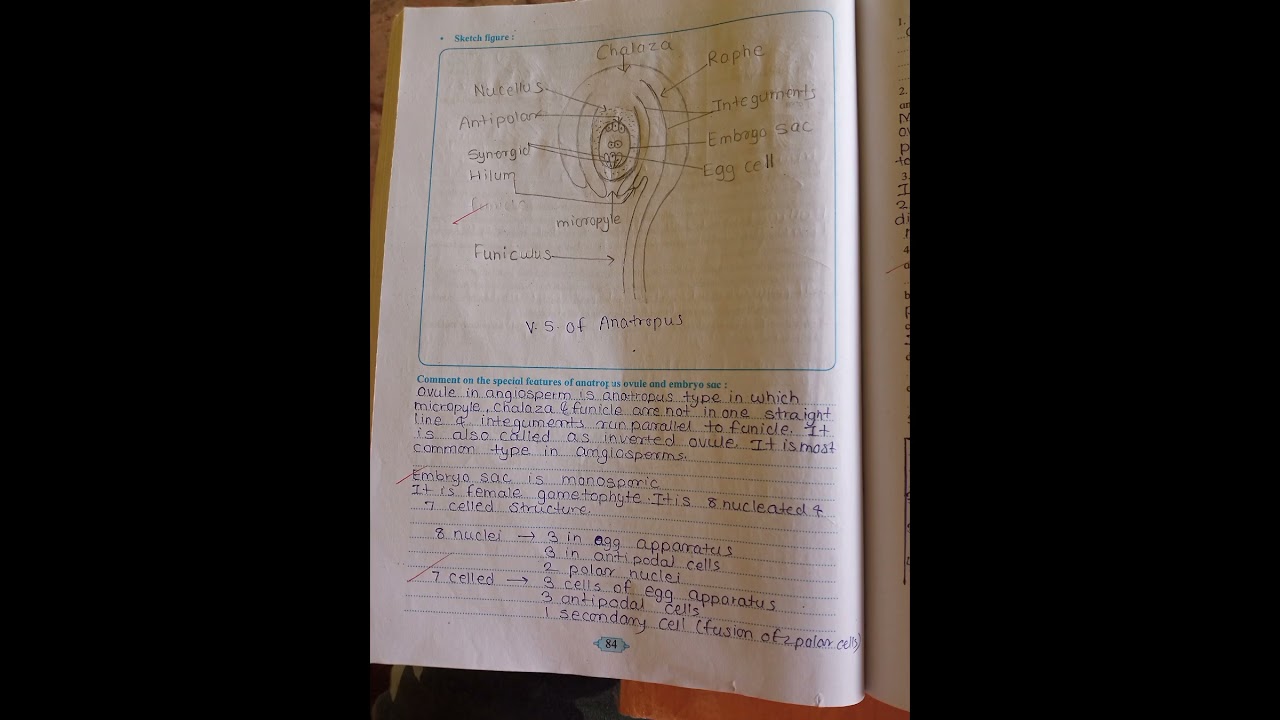 • Sketch figure :
Chalaza
Raphe
Nucellus
Integuments
Antipolar
Embryo sac
Synergid
Egg cell
Hilum
micropyle
Funiculus
V. S. of Anatropus
Comment on the special features of anatropus ovule and embryo sac :
Ovule in angiosperm is anatropus type in which
micropyle, chalaza & funicle are not in one straight
line & integuments run parallel to funicle. It
is also called as inverted ovule. It is most
common type in angiosperms.
Embryo sac is monosporic
It is female gametophyte. It is 8 nucleated &
7 celled structure.
8 nuclei → 3 in egg apparatus
3 in antipodal cells
2 polar nuclei
7 celled → 3 cells of egg apparatus
3 antipodal cells
1 secondary cell (fusion of 2 polar cells)
84
1.
2.
3.
I
2
di
4